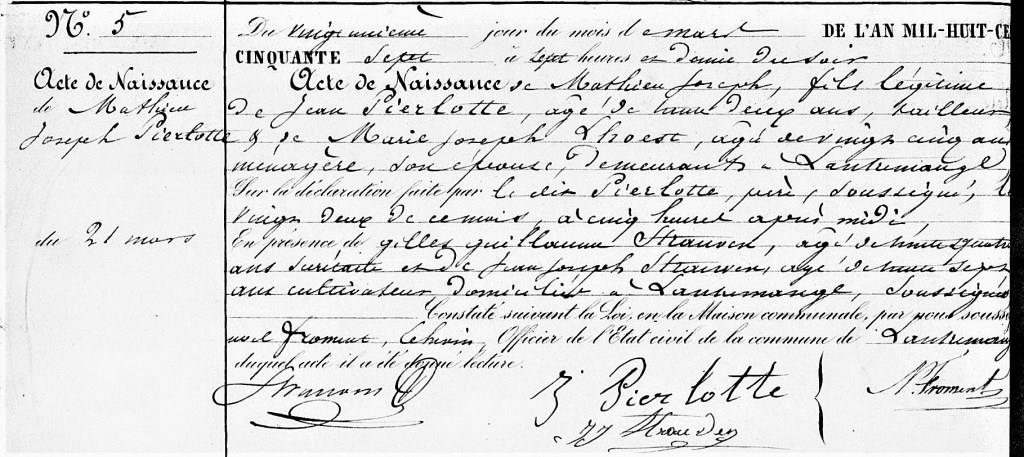 N.º 5
Acte de Naissance
de Mathieu
Joseph Pierlotte
du 21 mars
Du vingtunième jour du mois de mars DE L'AN MIL-HUIT-CE
CINQUANTE Sept à Sept heures et demie du soir
Acte de Naissance de Mathieu Joseph, fils légitime
de Jean Pierlotte, agé de trente deux ans, tailleur
& de Marie Joseph Lhoest, agé de vingt cinq ans
ménagère, son épouse, demeurants à Lantremange
Sur la déclaration faite par le dit Pierlotte, père, soussigné, le
vingt deux de ce mois, à cinq heures après midi,
En présence de gilles guillaume Strauven, agé de trente quatre
ans et de Jean Joseph Strauven, agé de trente sept
ans cultivateur domiciliés à Lantremange, soussignés
Constaté suivant la Loi, en la Maison communale, par nous souss
noel froment, Echevin, Officier de l'Etat civil de la commune de Lantremang
duquel acte il a été donné lecture.
J Pierlotte
N. Froment
JJ Strauven